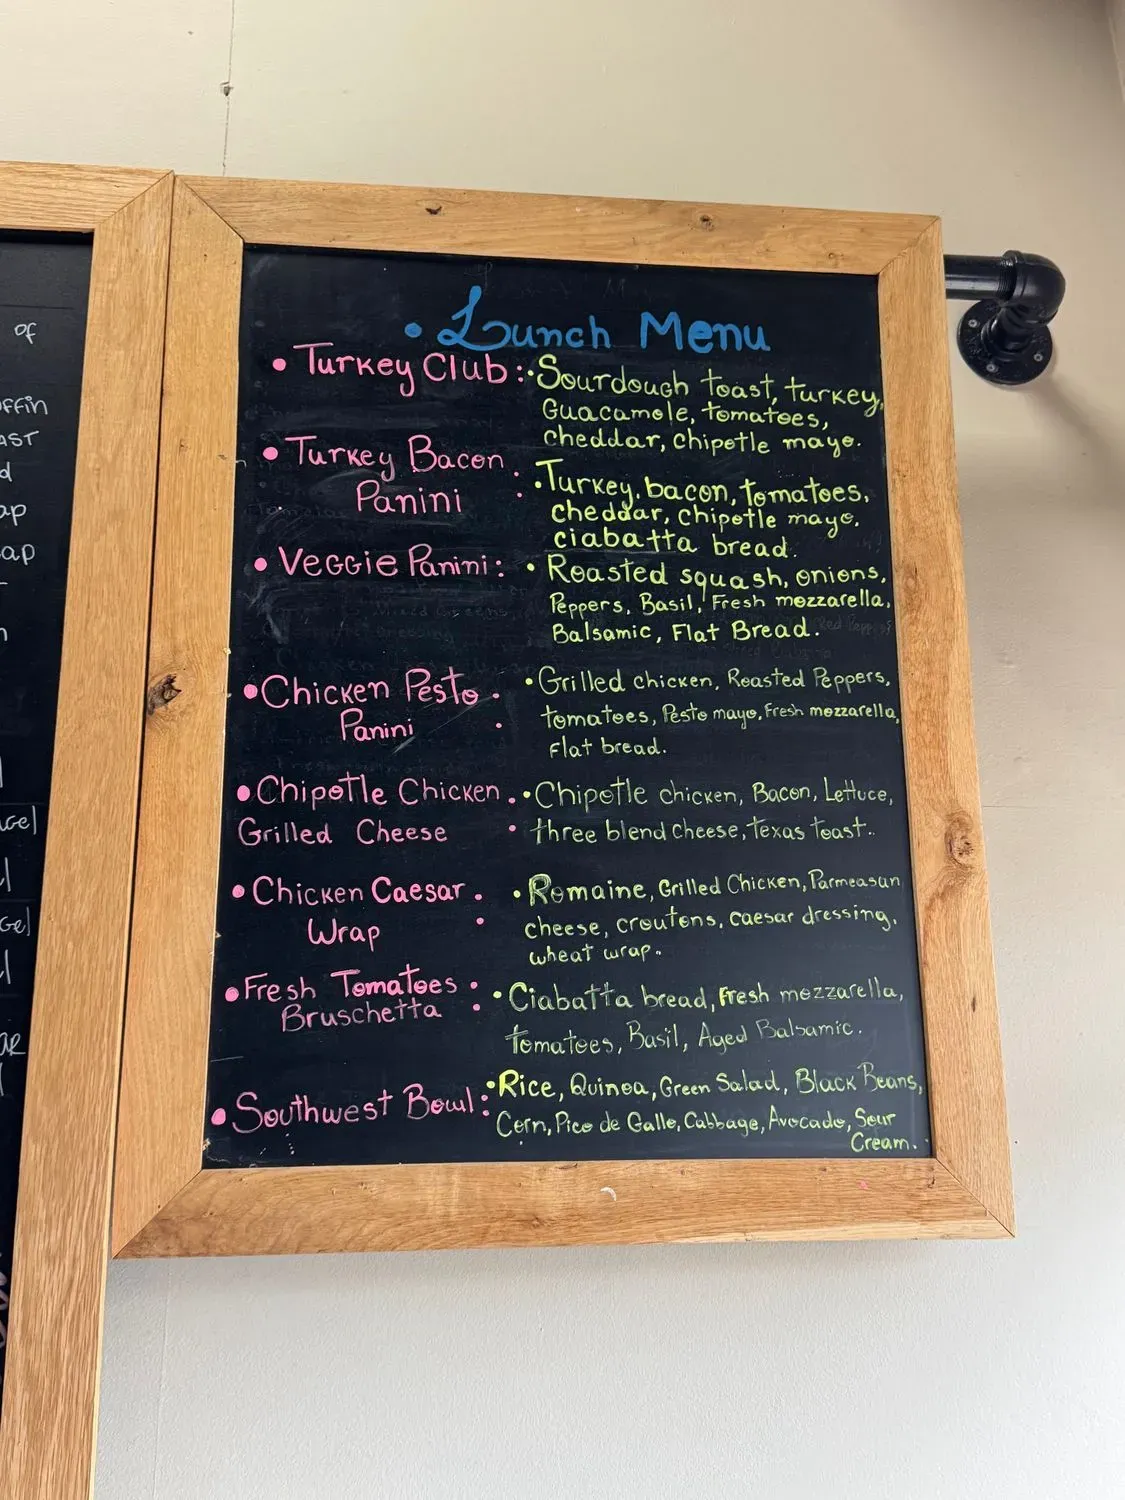 of
• Lunch Menu
• Turkey Club :
• Sourdough toast, turkey,
Guacamole, tomatoes,
cheddar, chipotle mayo.
• Turkey Bacon :
Panini
• Turkey, bacon, tomatoes,
cheddar, chipotle mayo,
ciabatta bread.
• Veggie Panini :
• Roasted squash, onions,
Peppers, Basil, Fresh mozzarella,
Balsamic, Flat Bread.
• Chicken Pesto :
Panini
• Grilled chicken, Roasted Peppers,
tomatoes, Pesto mayo, Fresh mozzarella,
Flat bread.
• Chipotle Chicken :
Grilled Cheese
• Chipotle chicken, Bacon, Lettuce,
three blend cheese, Texas toast.
• Chicken Caesar :
Wrap
• Romaine, Grilled Chicken, Parmeasan
cheese, croutons, caesar dressing,
wheat wrap.
• Fresh Tomatoes :
Bruschetta
• Ciabatta bread, Fresh mozzarella,
tomatoes, Basil, Aged Balsamic.
• Southwest Bowl :
• Rice, Quinoa, Green Salad, Black Beans,
Corn, Pico de Gallo, Cabbage, Avocado, Sour
Cream.